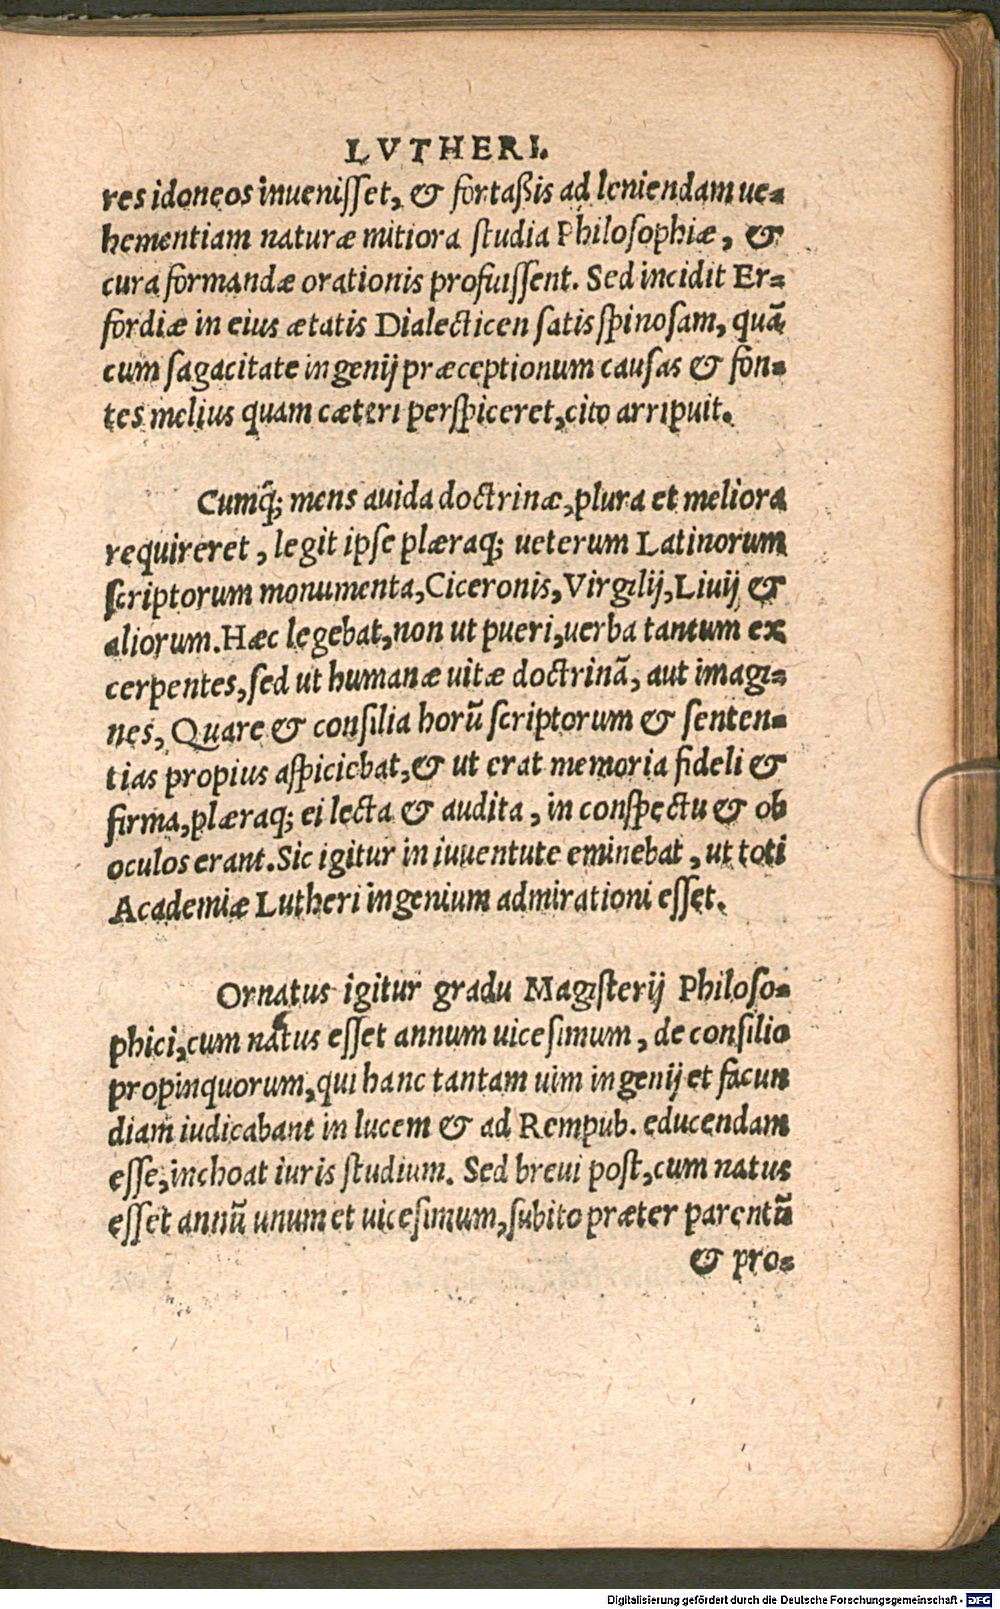 LVTHERI.
res idoneos inuenisset, & fortaßis ad leniendam ue=
hementiam naturæ mitiora studia Philosophiæ, &
cura formandæ orationis profuissent. Sed incidit Er=
fordiæ in eius ætatis Dialecticen satis spinosam, quã
cum sagacitate ingenij præceptionum causas & fon=
tes melius quam cæteri perspiceret, cito arripuit.
Cumq́; mens auida doctrinæ, plura et meliora
requireret, legit ipse plæraq; ueterum Latinorum
scriptorum monumenta, Ciceronis, Virgilij, Liuij &
aliorum. Hæc legebat, non ut pueri, uerba tantum ex
cerpentes, sed ut humanæ uitæ doctrinã, aut imagi=
nes, Quare & consilia horũ scriptorum & senten=
tias propius aspiciebat, & ut erat memoria fideli &
firma, plæraq; ei lecta & audita, in conspectu & ob
oculos erant. Sic igitur in iuuentute eminebat, ut toti
Academiæ Lutheri ingenium admirationi esset.
Ornatus igitur gradu Magisterij Philoso=
phici, cum natus esset annum uicesimum, de consilio
propinquorum, qui hanc tantam uim ingenij et facun
diam iudicabant in lucem & ad Rempub. educendam
esse, inchoat iuris studium. Sed breui post, cum natus
esset annũ unum et uicesimum, subito præter parentũ
& pro=
Digitalisierung gefördert durch die Deutsche Forschungsgemeinschaft - DFG